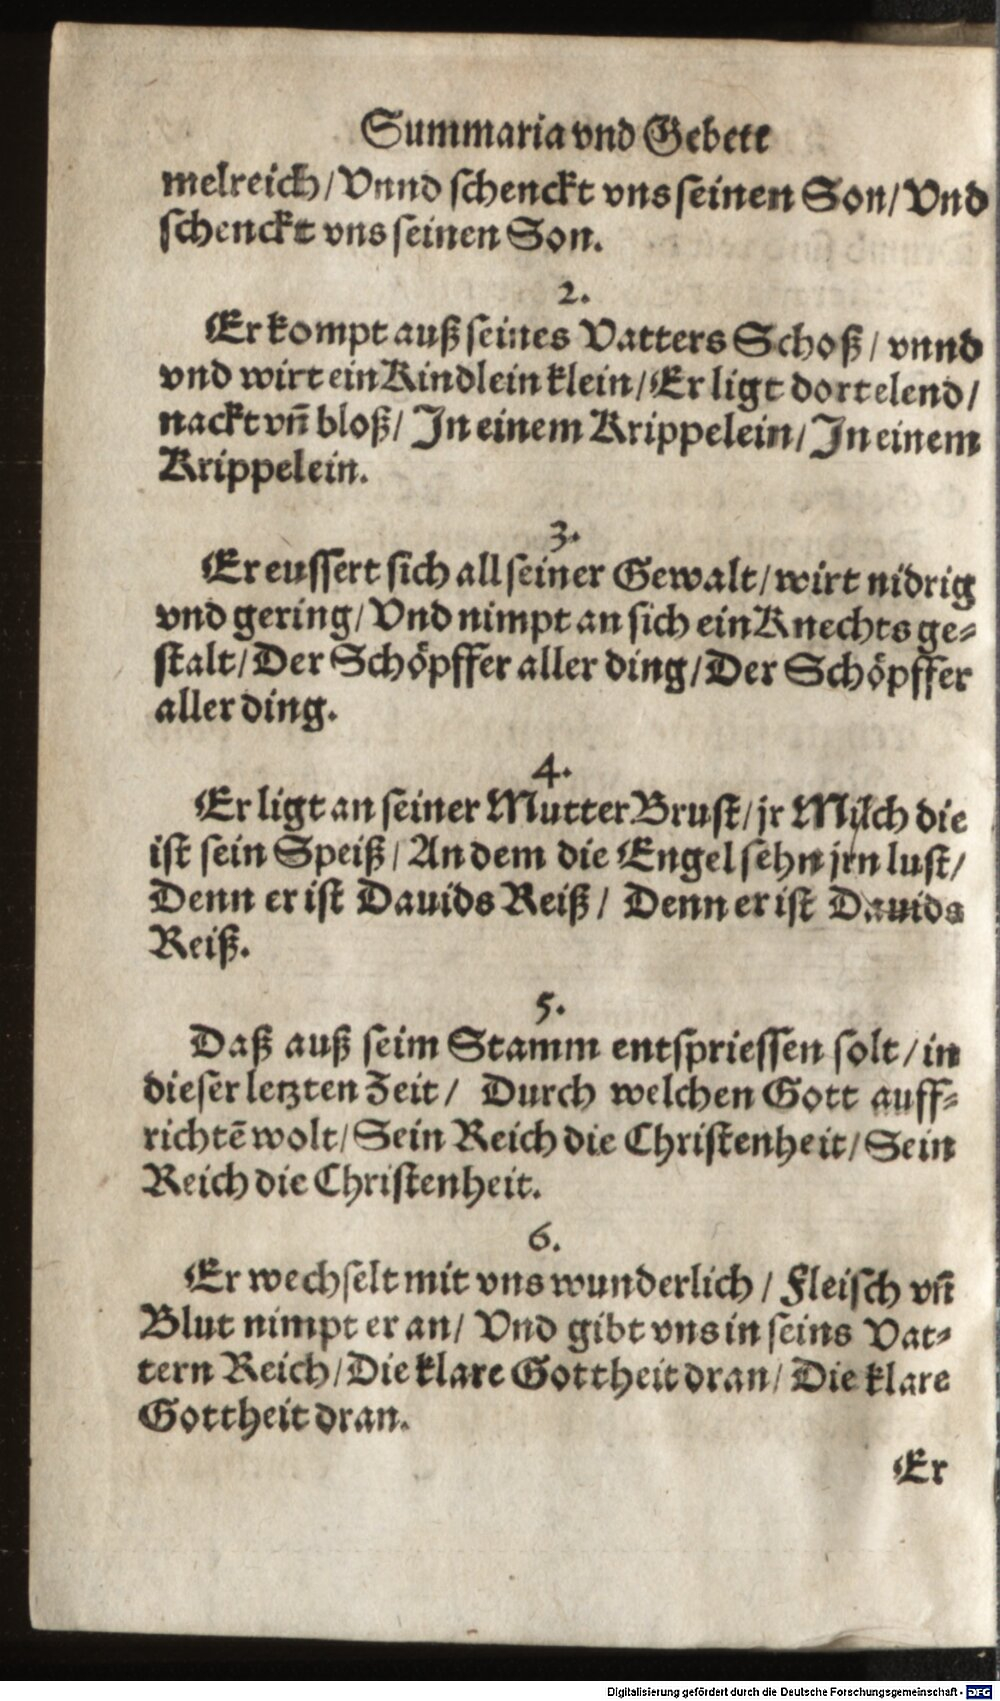 Summaria vnd Gebett
melreich/ Vnnd schenckt vns seinen Son/ Vnd
schenckt vns seinen Son.
2.
Er kompt auß seines Vatters Schoß/ vnnd
vnd wirt ein Kindlein klein/ Er ligt dort elend/
nackt vñ bloß/ In einem Krippelein/ In einem
Krippelein.
3.
Er eussert sich all seiner Gewalt/ wirt nidrig
vnd gering/ Vnd nimpt an sich ein Knechts ge-
stalt/ Der Schöpffer aller ding/ Der Schöpffer
aller ding.
4.
Er ligt an seiner Mutter Brust/ jr Milch die
ist sein Speiß/ An dem die Engel sehn jrn lust/
Denn er ist Dauids Reiß/ Denn er ist Dauids
Reiß.
5.
Daß auß seim Stamm entspriessen solt/ in
dieser letzten Zeit/ Durch welchen Gott auff-
richtē wolt/ Sein Reich die Christenheit/ Sein
Reich die Christenheit.
6.
Er wechselt mit vns wunderlich/ Fleisch vñ
Blut nimpt er an/ Vnd gibt vns in seins Vat-
tern Reich/ Die klare Gottheit dran/ Die klare
Gottheit dran.
Er
Digitalisierung gefördert durch die Deutsche Forschungsgemeinschaft - DFG